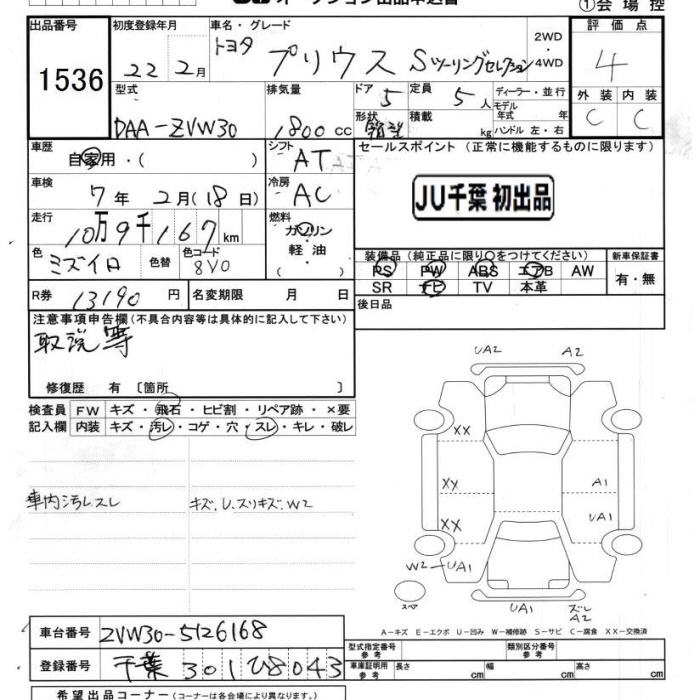 ①会場控
出品番号 初度登録年月 車名・グレード 評価点
1536 22 2月 トヨタ プリウス Sツーリングセレクション 2WD・4WD 4
型式 排気量 ドア 5 定員 5人 ディーラー・並行 外装 内装
DAA-ZVW30 1800cc 形状 箱型 積載 kg モデル年式 年 ハンドル 左・右 C C
車歴 自家用・( ) シフト AT セールスポイント (正常に機能するものに限ります)
車検 7年 2月(18日) 冷房 AC JU千葉 初出品
走行 10万9千167km 燃料 ガソリン・軽油
色 ミズイロ 色替 色コード 8V0
装備品 (純正品に限り○をつけてください) 新車保証書
PS PW ABS エアB AW 有・無
SR ナビ TV 本革
R券 13190円 名変期限 月 日 後日品
注意事項申告欄(不具合内容等は具体的に記入して下さい)
取説等
修復歴 有 〔箇所 〕
検査員記入欄 FW キズ・飛石・ヒビ割・リペア跡・×要
内装 キズ・汚レ・コゲ・穴・スレ・キレ・破レ
車内汚レスレ キズ.U.スリキズ.W2
UA2 A2
XX
XY A1
XX UA1
W2 UA1 UA1
スペア UA1 ズレ A2
A-キズ E-エクボ U-凹み W-補修跡 S-サビ C-腐食 XX-交換済
車台番号 ZVW30-5126168
型式指定番号 参考 類別区分番号 参考
登録番号 千葉 301 ひ8043
車庫証明用 参考 長さ cm 幅 cm 高さ cm
希望出品コーナー(コーナーは各会場により異なります。)